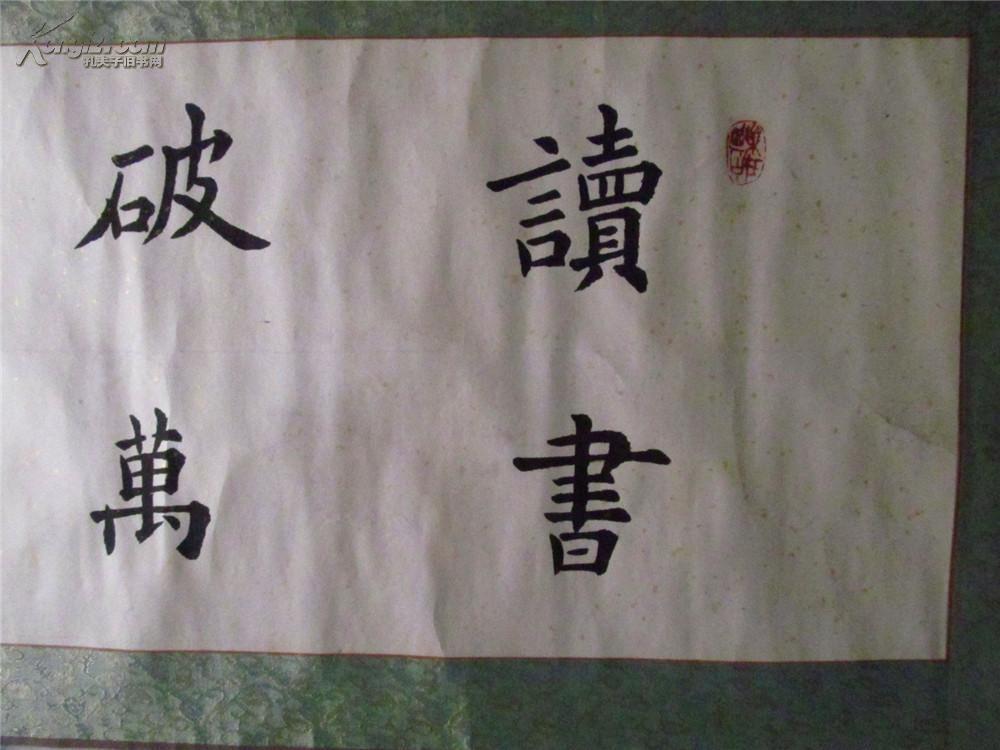 讀書
破萬
Kongfz.com
孔夫子旧书网